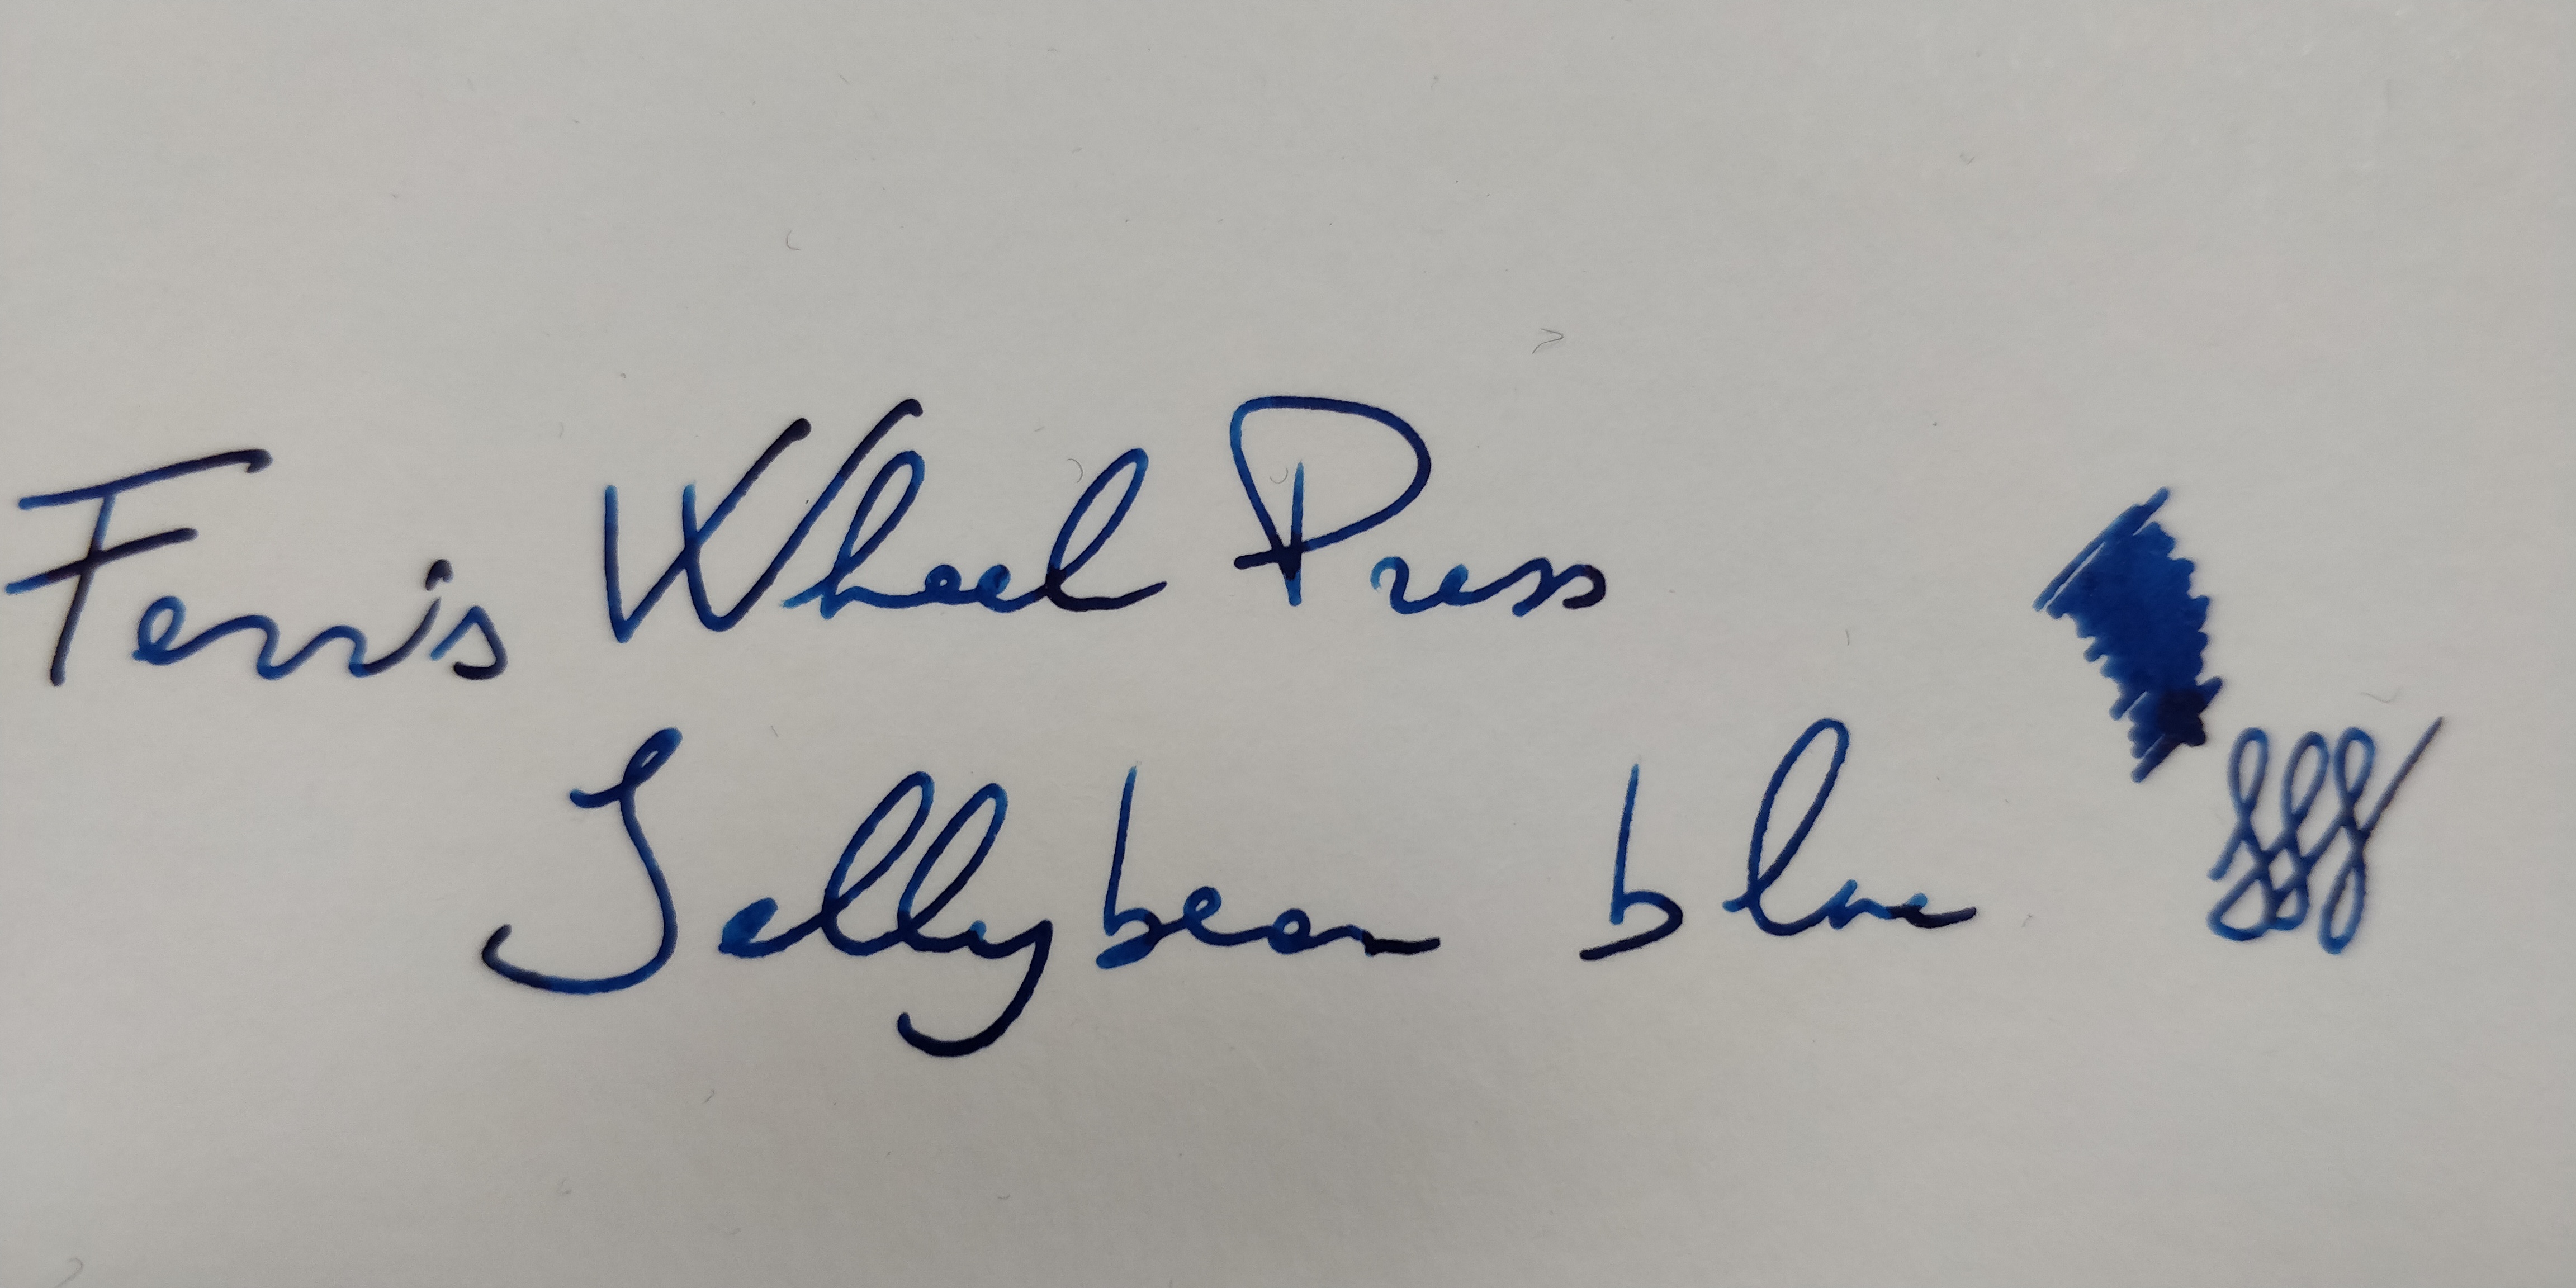 Ferris Wheel Press
Jellybean blue